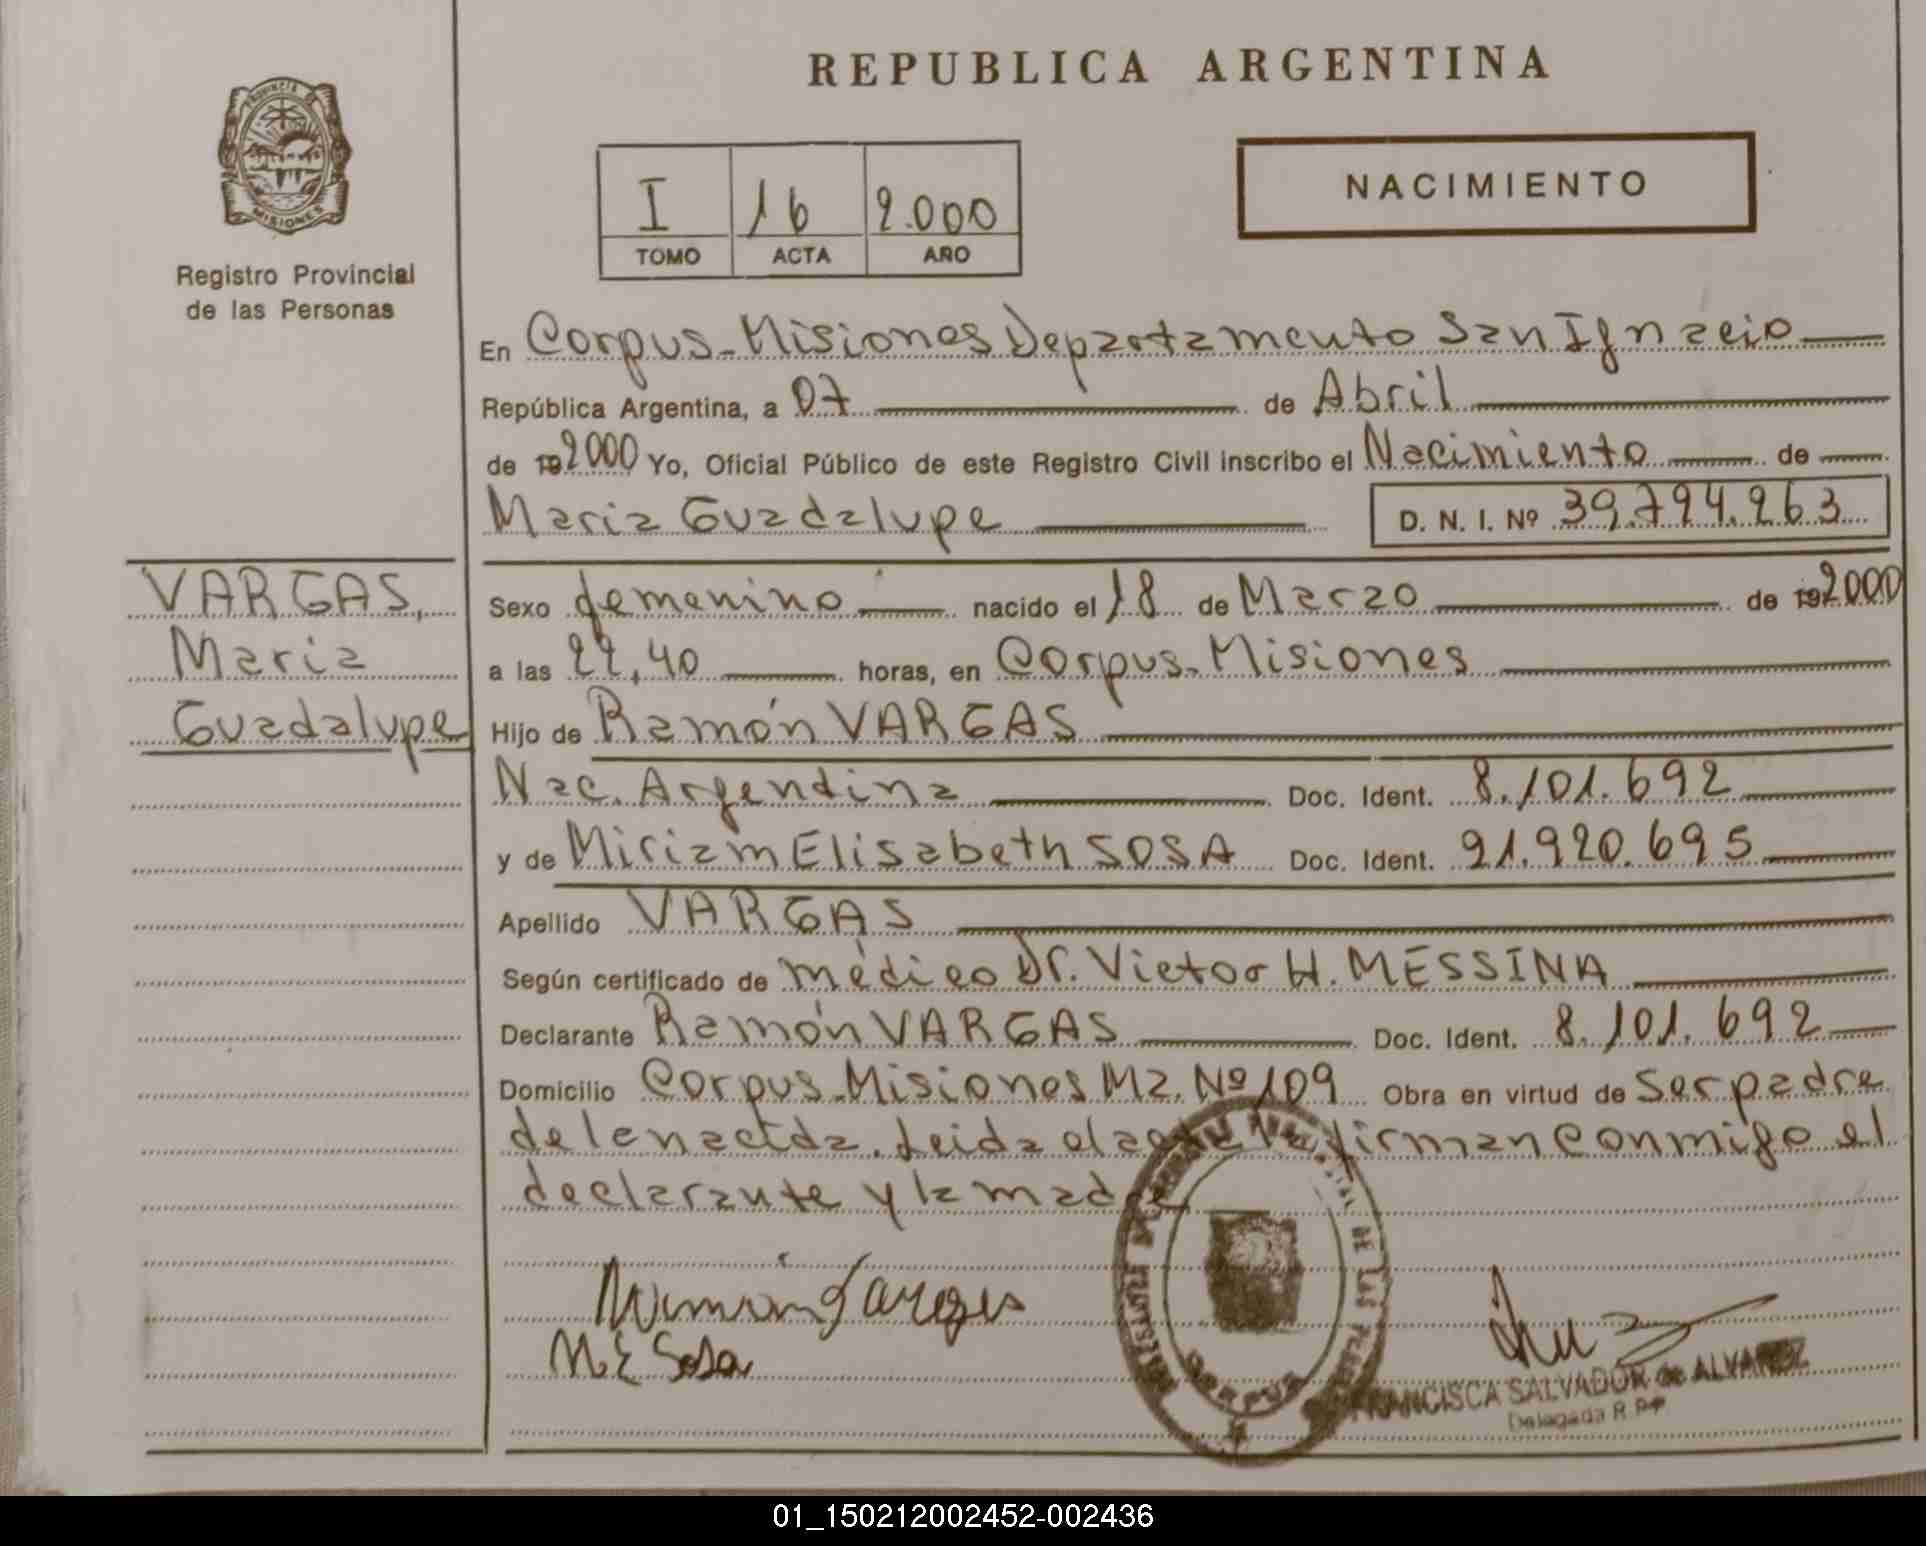 REPUBLICA ARGENTINA
PROVINCIA DE
MISIONES
Registro Provincial
de las Personas
I 16 2.000
TOMO ACTA AÑO
NACIMIENTO
En Corpus-Misiones Departamento San Ignacio
República Argentina, a 07 de Abril
de 192000 Yo, Oficial Público de este Registro Civil inscribo el Nacimiento de
Maria Guadalupe D. N. I. Nº 39.794.263
VARGAS,
Maria
Guadalupe
Sexo femenino nacido el 18 de Marzo de 192000
a las 22,40 horas, en Corpus-Misiones
Hijo de Ramón VARGAS
Nac. Argentina Doc. Ident. 8.101.692
y de Miriam Elisabeth SOSA Doc. Ident. 91.920.695
Apellido VARGAS
Según certificado de médico Dr. Victor H. MESSINA
Declarante Ramón VARGAS Doc. Ident. 8.101.692
Domicilio Corpus-Misiones Mz. Nº 109 Obra en virtud de ser padre
de la nacida. Leida el acta la firman conmigo el
declarante y la madre
M E Sosa
DE LAS
CORPUS
FRANCISCA SALVADOR de ALVAREZ
Delegada R.P.P
01_150212002452-002436